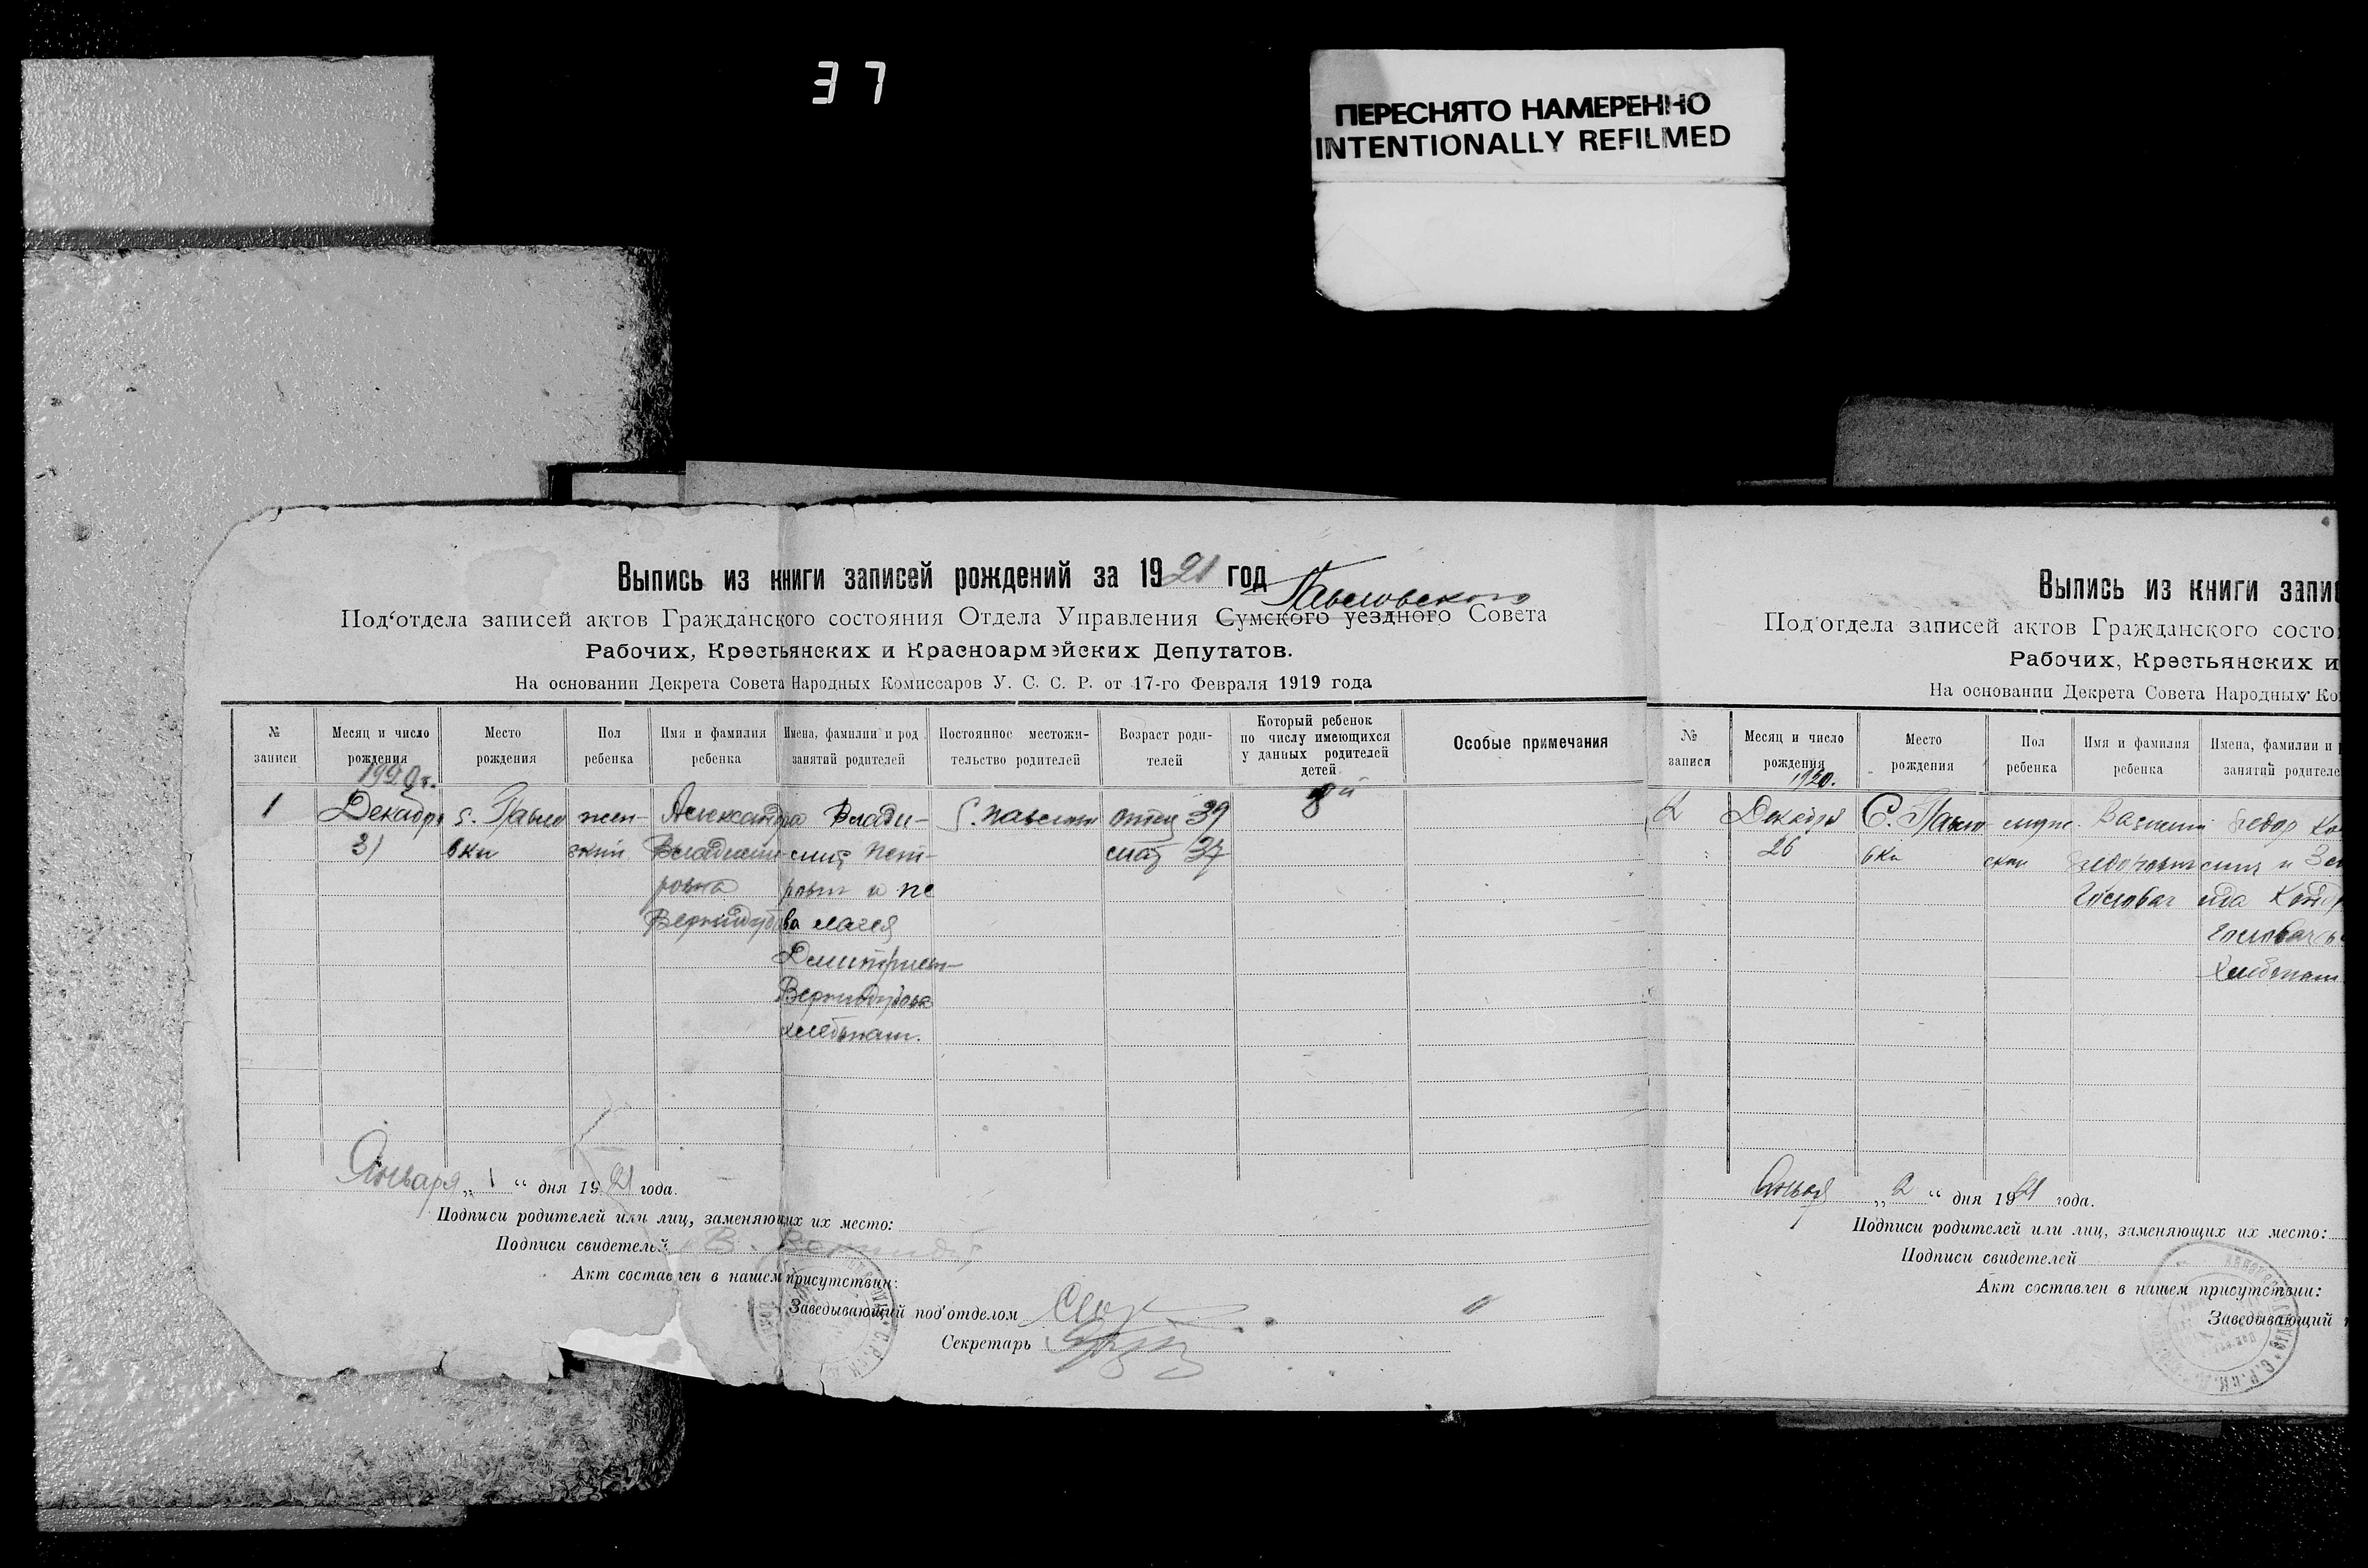 37
ПЕРЕСНЯТО НАМЕРЕННО
INTENTIONALLY REFILMED
Выпись из книги записей рождений за 1921 год
Павловского
Под‘отдела записей актов Гражданского состояния Отдела Управления Сумского уездного Совета
Рабочих, Крестьянских и Красноармейских Депутатов.
На основании Декрета Совета Народных Комиссаров У. С. С. Р. от 17-го Февраля 1919 года
№ записи
Месяц и число рождения
Место рождения
Пол ребенка
Имя и фамилия ребенка
Имена, фамилии и род занятий родителей
Постоянное местожительство родителей
Возраст родителей
Который ребенок по числу имеющихся у данных родителей детей
Особые примечания
1920г.
1 Декабря с. Павло жен- Александра Влади- отец 39 8й
31 вки ский Владими- мир Пет- мать 37
ровна рович и
Дмитриев-
хлебопаш.
Января „1“ дня 1921 года.
Подписи родителей или лиц, заменяющих их место:
Подписи свидетелей
Акт составлен в нашем присутствии:
Заведывающий под‘отделом
Секретарь
Выпись из книги запис
Под‘отдела записей актов Гражданского состо
Рабочих, Крестьянских и
На основании Декрета Совета Народных Ко
№ записи
Месяц и число рождения
Место рождения
Пол ребенка
Имя и фамилия ребенка
Имена, фамилии и
занятий родителе
1920.
2 Декабря С. Павло муж. Федор
26 вки ской
Головач
Января „2“ дня 1921 года.
Подписи родителей или лиц, заменяющих их место:
Подписи свидетелей
Акт составлен в нашем присутствии:
Заведывающий